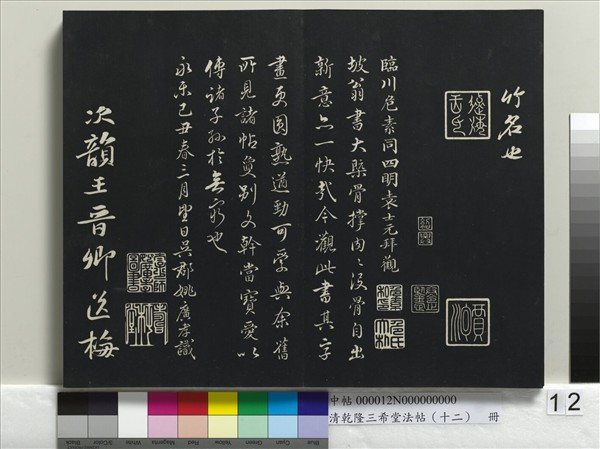 竹名也
臨川危素同四明袁士元拜觀
坡翁書大槩骨撑肉〻没骨自出
新意亦一快哉今觀此書其字
畫更圓熟遒勁可學與余舊
所見諸帖夐别文幹當寶愛以
傳諸子孫於無窮也
永樂己丑春三月望日吳郡姚廣孝識
次韻王晉卿送梅
中帖 000012N000000000
清乾隆三希堂法帖（十二） 冊
12
Black
3/Color
White
Magenta
Red
Yellow
Green
Cyan
Blue